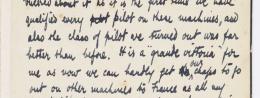 about it as it is the first time we have
qualified every pilot on Here machines, and
also the class of pilot we turned out was far
better than before. It is a "grande victoire" for
me as now we can hardly get our chaps to go
out on other machines to France as all any